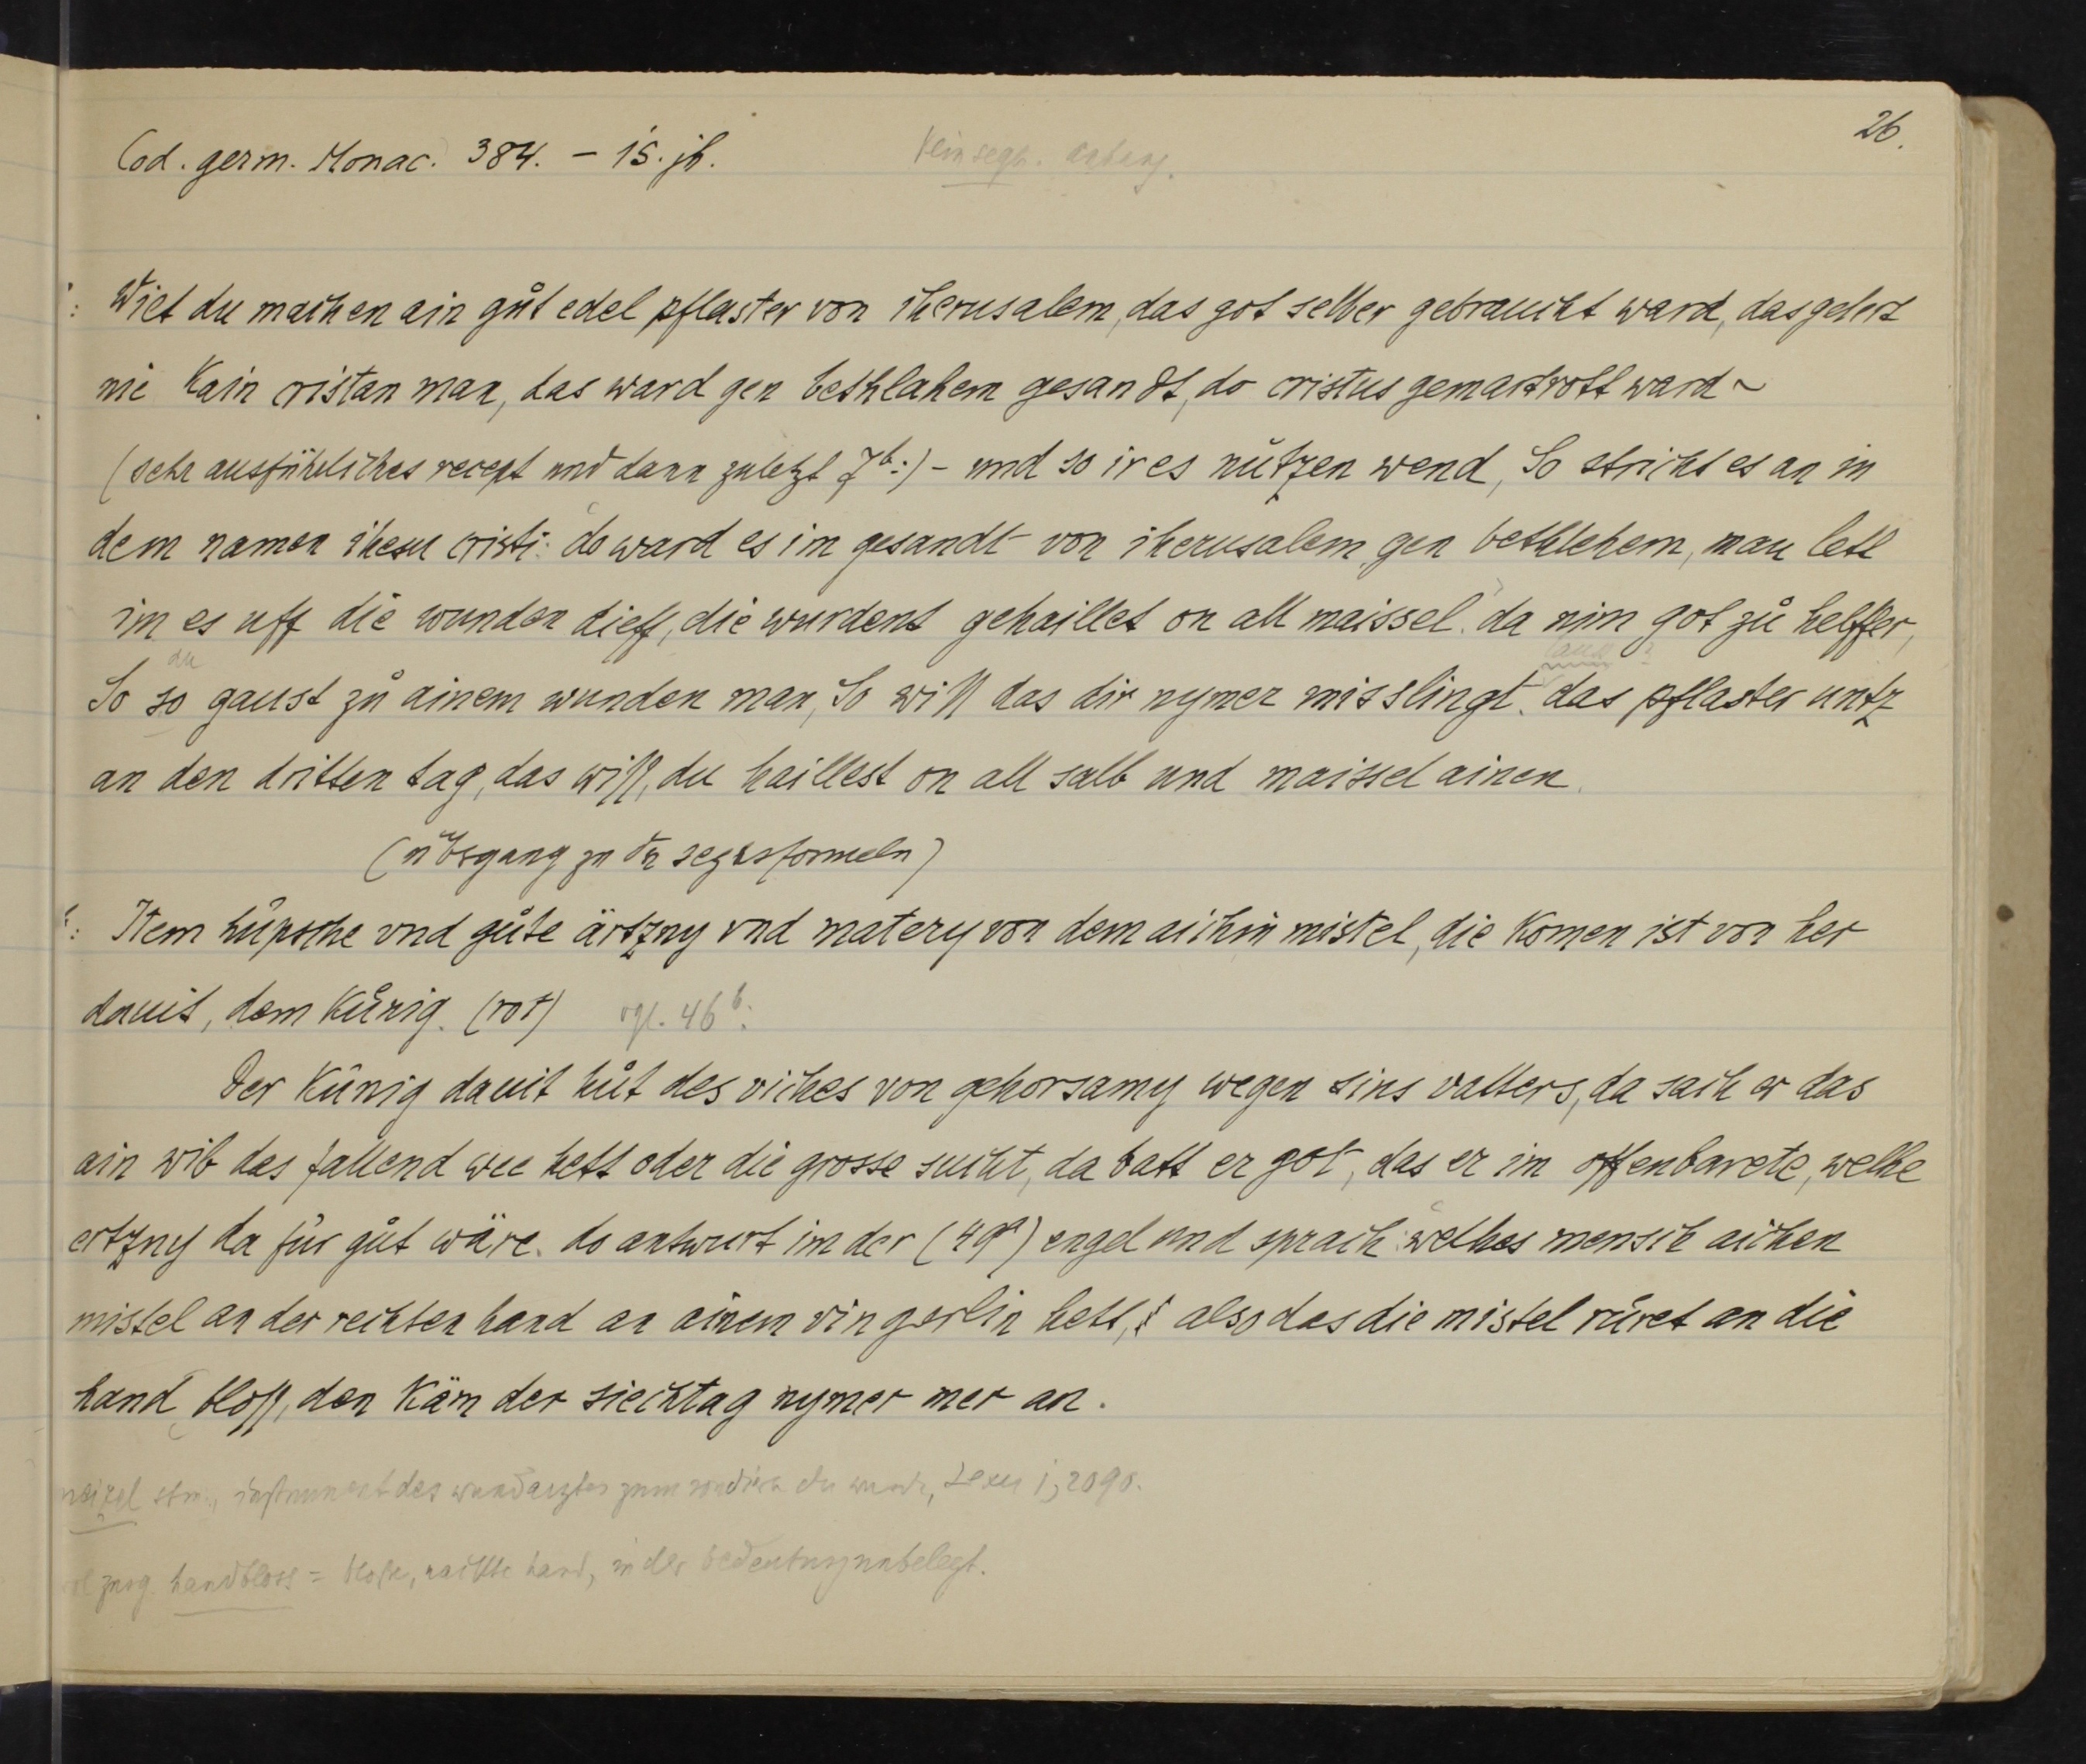 26.
Cod. germ. Monac. 384. – 15. jh.
Wiet du machen ain gůt edel pflaster von iherusalem, das got selber gebraucht ward, das gelert
nie kain cristan man, das ward gen bethlahem gesandt, do cristus gemartrott ward ~
(sehr ausführliches recept und dann zuletzt 7ᵇ:) – und so ir es nützen wend, So stricht es an in
dem namen ihesu cristi: do ward es im gesandt von iherusalem gen bethlehem, man lett
im es uff die wunden dieff, die wurdent gehaillet on all maissel. da nim got zů helffer,
du
So so gaust zů ainem wunden man, So wiss das dir nymer misslingt. das pflaster untz
an den dritten tag, das wiss, du haillest on all salb und maissel ainen.
(übergang zu den segensformeln)
Item hüpsche vnd gůte ärtzny vnd matery von dem aichin mistel, die komen ist von her
dauit, dem künig. (rot) vgl. 46ᵇ:
Der künig dauit hůt des viches von gehorsamy wegen sins vatters, da sach er das
ain wib das fallend wee hett oder die grosse sucht, da batt er got, das er im offenbarete, welhe
ertzny da für gůt wäre. do antwurt im der (49ᵃ) engel und sprach: welhes mensch aichen
mistel an der rechten hand an ainem vingerlin hett, also das die mistel rüret an die
hand bloss, den käm der siechtag nymer mer an.
meizel stm., instrument des wundarztes zum sondieren der wunde, Lexer 1, 2090.
handbloss = blosse, nackte hand, in der bedeutung unbelegt.